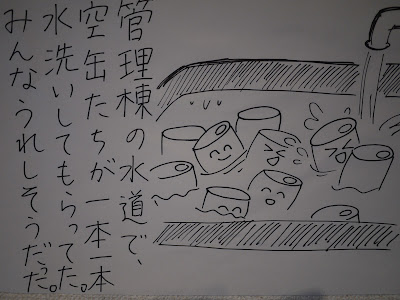 管理棟の水道で、
空缶たちが一本一本
水洗いしてもらってた。
みんなうれしそうだった。